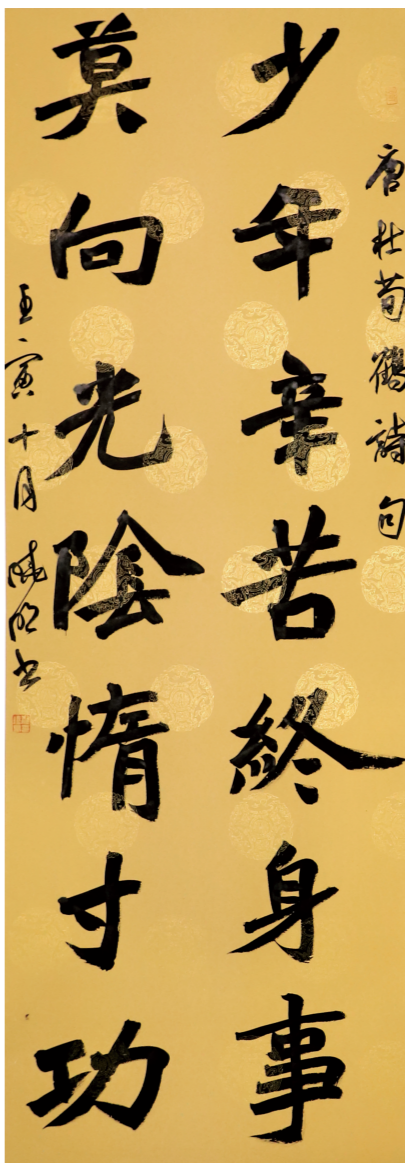 唐杜荀鶴詩句
少年辛苦終身事
莫向光陰惰寸功
壬寅十月曉明书